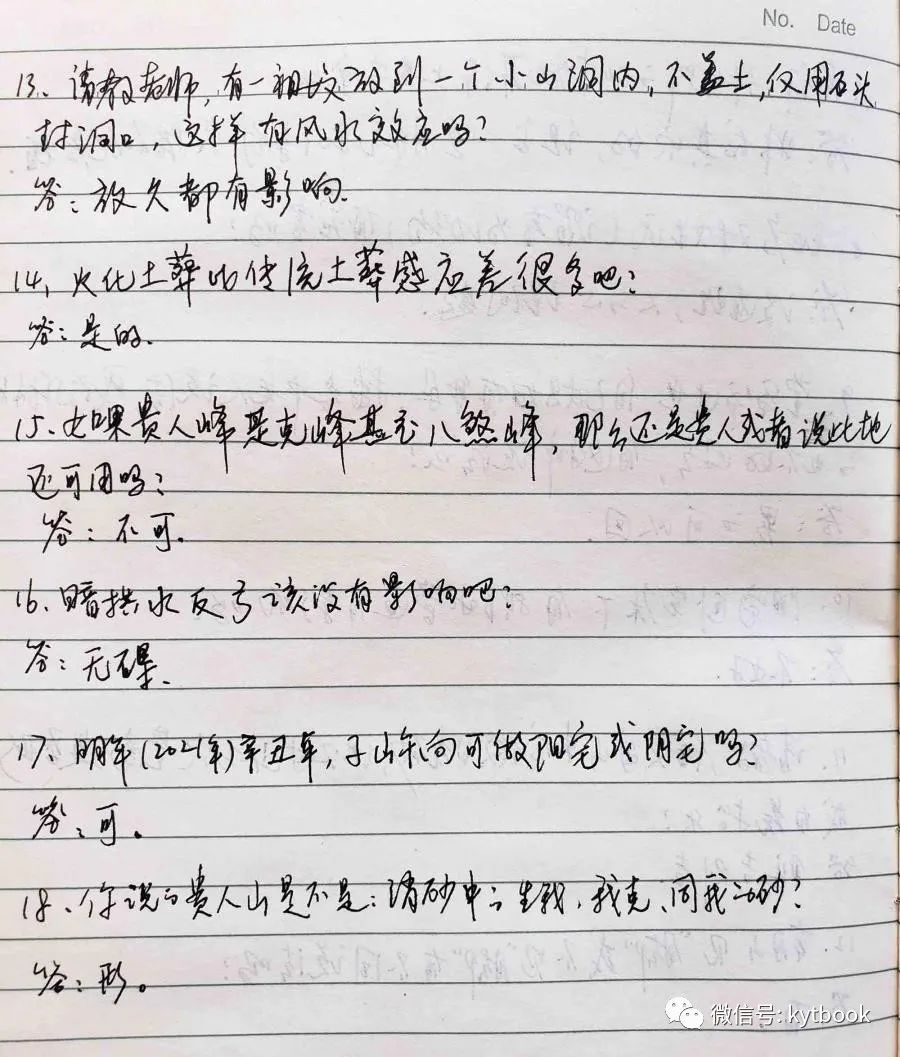 No. Date
13、请教老师,有一祖坟放到一个小山洞内,不盖土,仅用石头
封洞口,这样有风水效应吗?
答:放久都有影响.
14、火化土葬比传统土葬感应差很多吧?
答:是的.
15、如果贵人峰是克峰甚至八煞峰,那么还是贵人或者说此地
还可用吗?
答:不可。
16、暗拱水反弓该没有影响吧?
答:无碍.
17、明年(2021年)辛丑年,子山午向可做阳宅或阴宅吗?
答:可。
18、你说的贵人山是不是:清砂中的生我、我克、同我的砂?
答:形。
微信号: kytbook